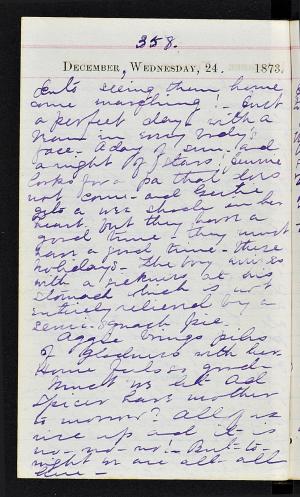 358.
December, Wednesday, 24. 1873.
seeing them home
come marching! - Just
a perfect day with a
in every body's
face. A day of sun - and
a night of stars! Jennie
looks for a pa that does
not come - and Gertie
gets a wee shock in her
heart. But they have a
good time, they must
have a good time - these
holidays - The boy arrives
with a at his
stomach which is not
entirely relieved by a
semi-squash pie.
Aggie brings piles
of gladness with her
Home feels so good -
Must we let Ad
Spicer have mother
to morrow? All of us
rise up and it is
no - no - no! - But - to-
night we are all all
here -